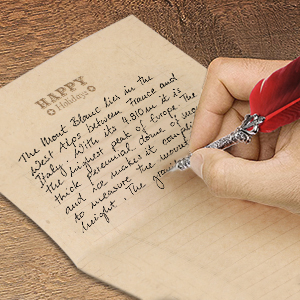 HAPPY
Holidays
The Mont Blanc lies in the
West Alps between France and
Italy. With its 4.810m it is
the highest peak of Europe. The
thick perennial dome of snow
and ice makes it complicated
to measure the mountain's
height. The